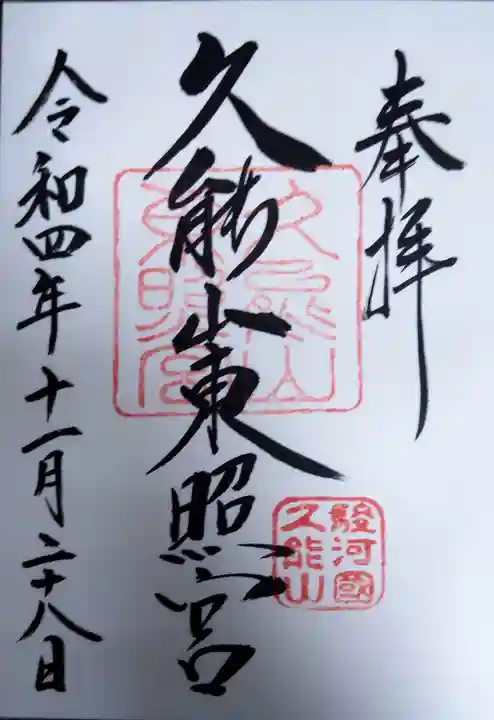 奉拝
久能山東照宮
久能山
東照宮
駿河國
久能山
令和四年十一月二十八日